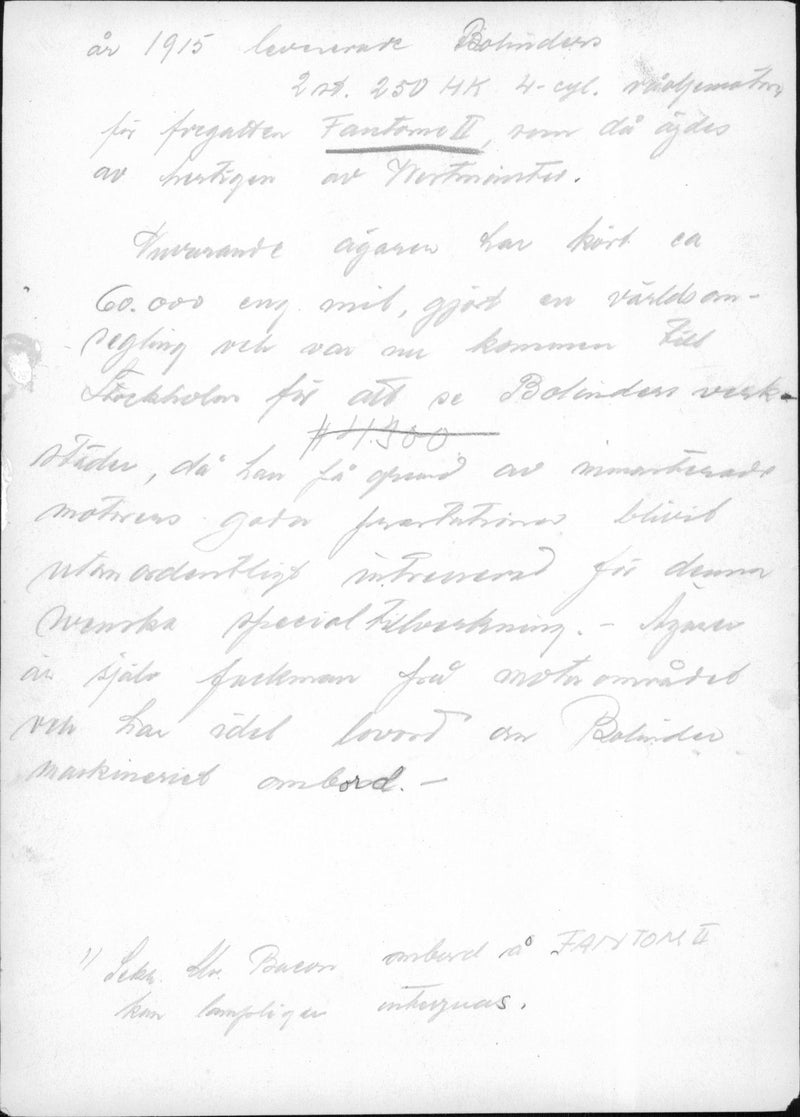 år 1915 levererade Bolinders
2 st. 250 HK 4-cyl. råoljemotor
för fregatten Fantome II, som då ägdes
av hertigen av Westminster.
Nuvarande ägaren har kört ca
60.000 eng mil, gjort en världsom-
segling och var nu kommen till
Stockholm för att se Bolinders verk-
städer, då han på grund av inmonterade
motorers goda prestationer blivit
utomordentligt intresserad för denna
svenska specialtillverkning. – Ägaren
är själv fackman på motorområdet
och har idel lovord om Bolinder
maskineriet ombord. –
1) Sekr. Mr. Bacon ombord å FANTOM II
kan lämpligen intervjuas.